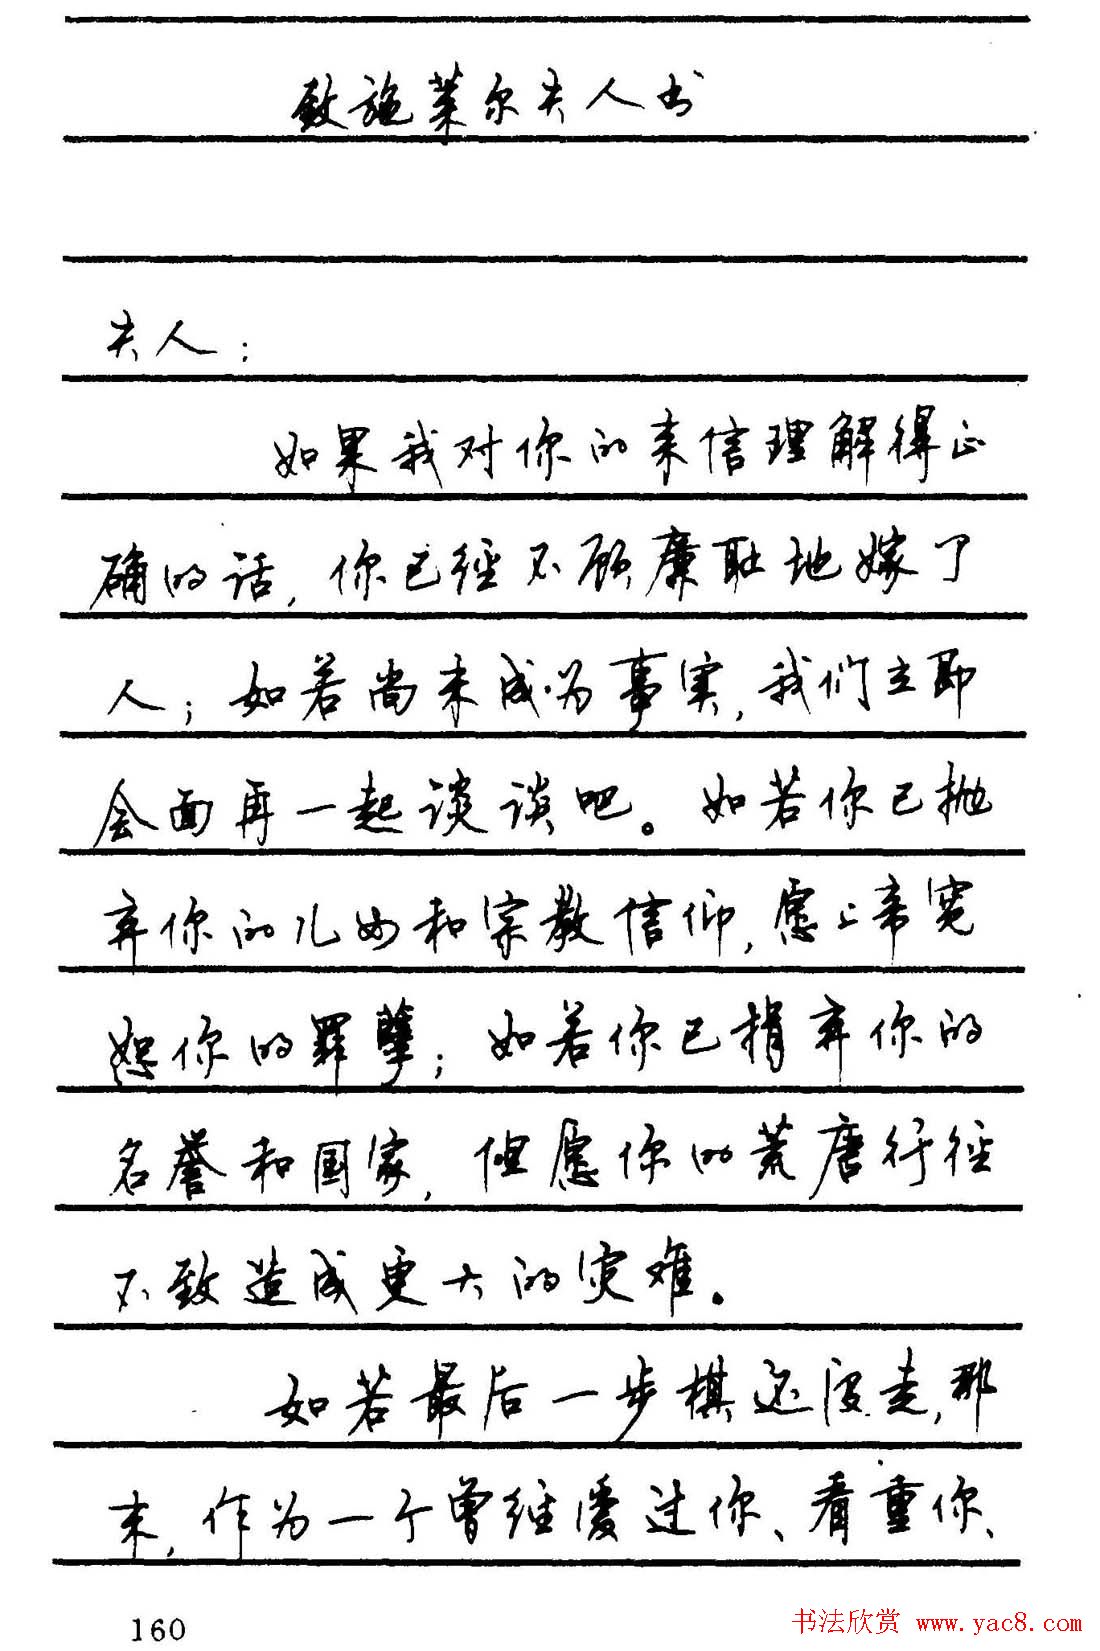 致施莱尔夫人书
夫人：
如果我对你的来信理解得正
确的话，你已经不顾廉耻地嫁了
人；如若尚未成为事实，我们立即
会面再一起谈谈吧。如若你已抛
弃你的儿女和宗教信仰，愿上帝宽
恕你的罪孽；如若你已捐弃你的
名誉和国家，但愿你的荒唐行径
不致造成更大的灾难。
如若最后一步棋还没走，那
末，作为一个曾经爱过你、看重你、
160
书法欣赏 www.yac8.com